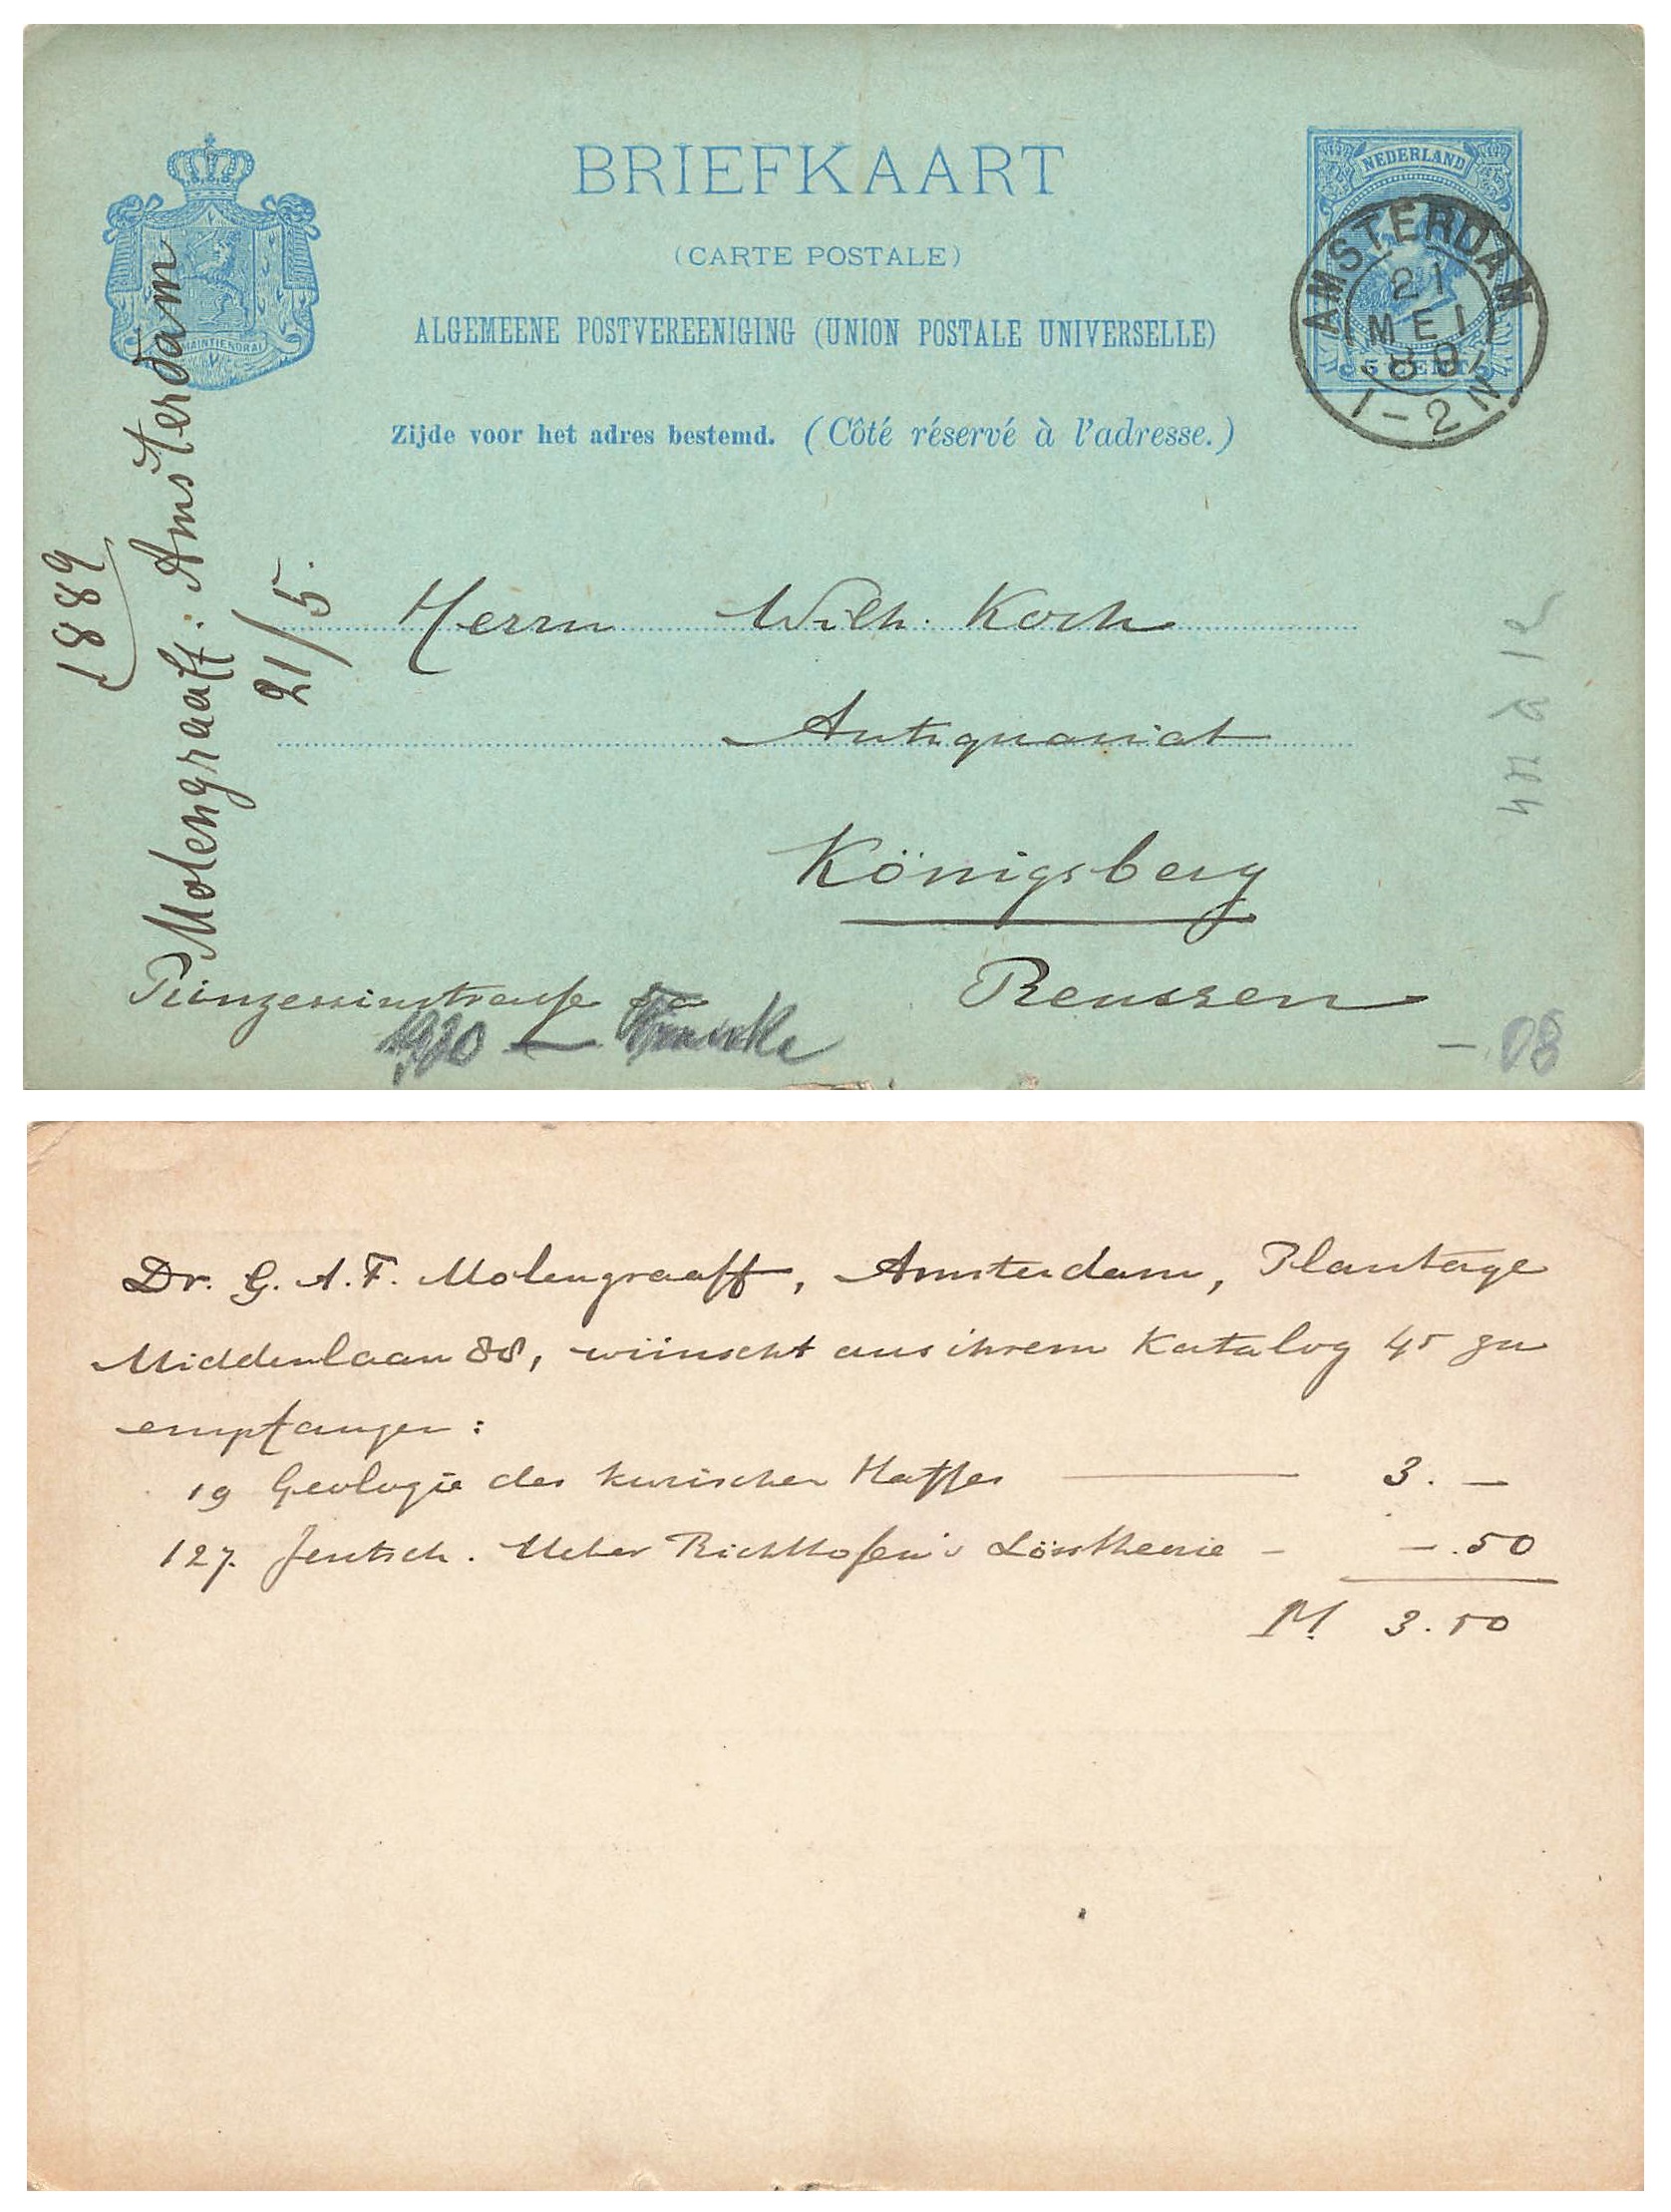 BRIEFKAART
(CARTE POSTALE)
ALGEMEENE POSTVEREENIGING (UNION POSTALE UNIVERSELLE)
Zijde voor het adres bestemd. (Côté réservé à l'adresse.)
NEDERLAND
5 CENT
AMSTERDAM
21
MEI
89
1-2N
1889
Molengraaff: Amsterdam
21/5.
Herrn Wilh. Koch
Antiquariat
Königsberg
Preussen
Prinzessinstrasse
1920 —
— .08
Dr. G. A. F. Molengraaff, Amsterdam, Plantage
Middenlaan 88, wünscht aus ihrem Katalog 45 zu
empfangen:
19 Geologie des kurischen Haffes — 3. —
127. Jentsch. Ueber Richthofen's Lösstheorie - -.50
M 3.50